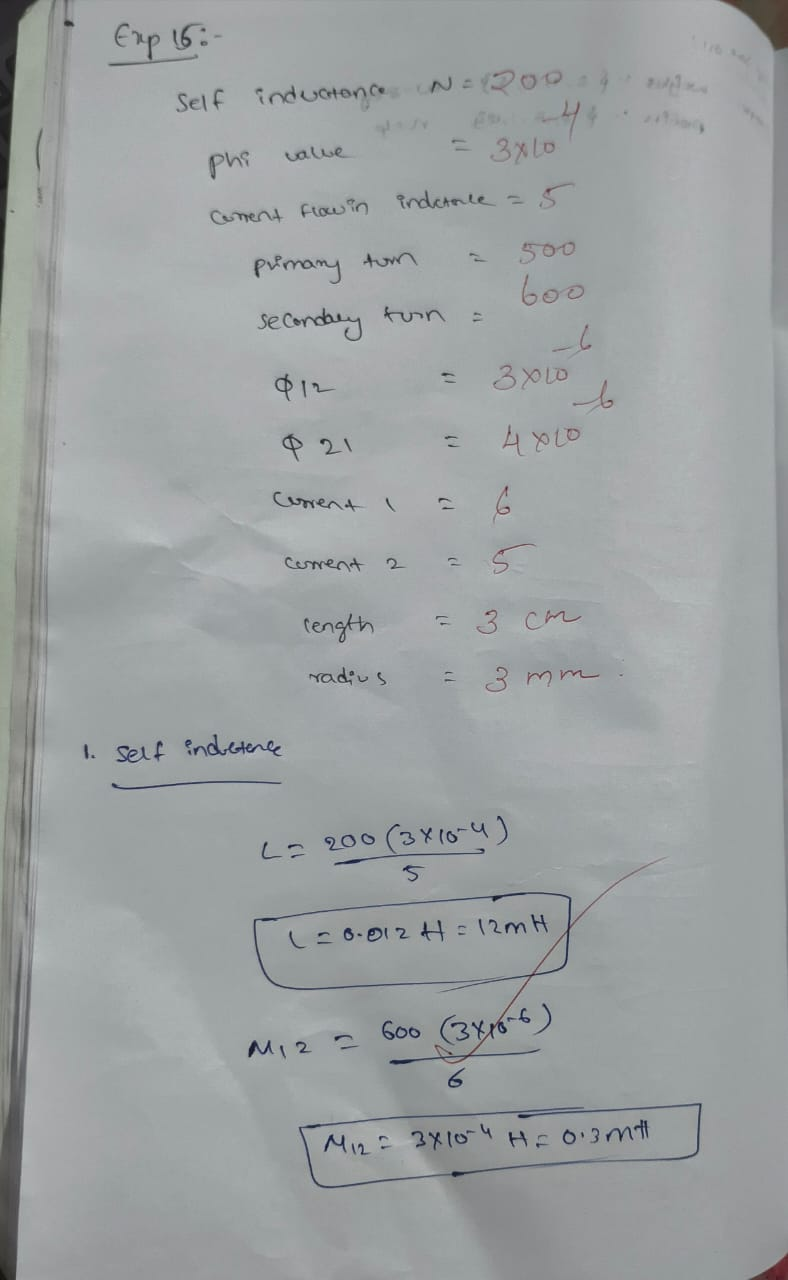 Exp 15:-
Self inductance N = 200
phi value = 3x10^-4
current flow in indctnle = 5
primary turn = 500
secondary turn = 600
φ12 = 3x10^-6
φ21 = 4x10^-6
current 1 = 6
current 2 = 5
length = 3 cm
radius = 3 mm.
1. self indctence
L = 200 (3x10^-4) / 5
L = 0.012 H = 12mH
M12 = 600 (3x10^-6) / 6
M12 = 3x10^-4 H = 0.3mH